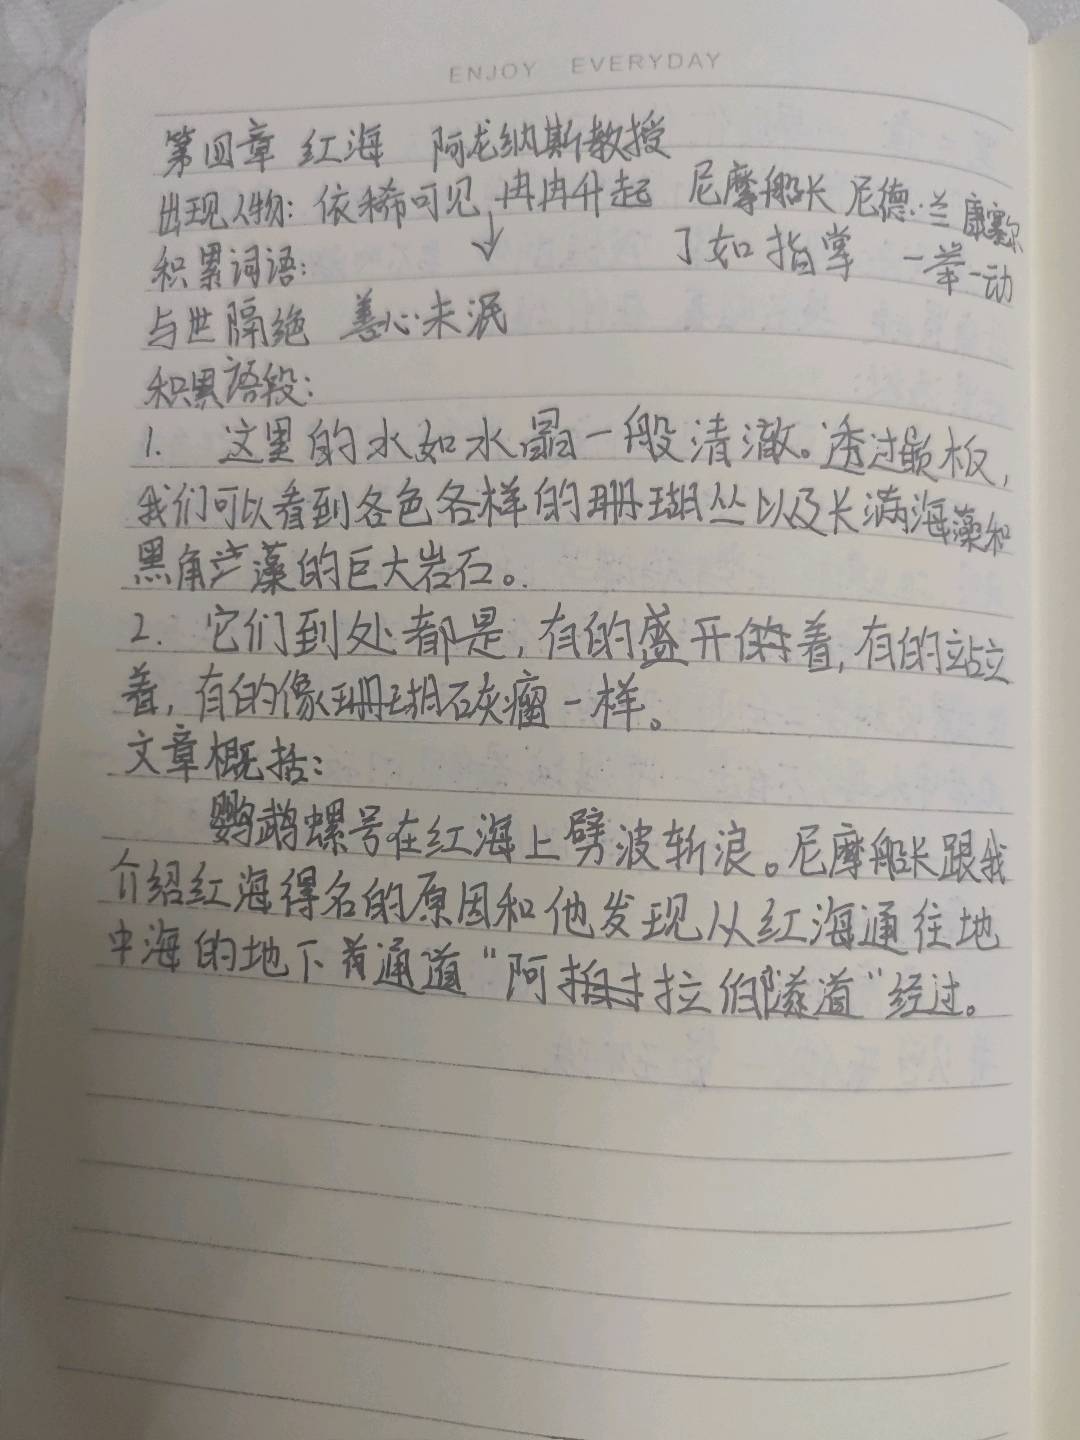 ENJOY EVERYDAY
第四章 红海 阿龙纳斯教授
出现人物: 依稀可见 冉冉升起 尼摩船长 尼德·兰 康塞尔
积累词语: ↓ 了如指掌 一举一动
与世隔绝 善心未泯
积累语段:
1. 这里的水如水晶一般清澈。透过嵌板,
我们可以看到各色各样的珊瑚丛以及长满海藻和
黑角芒藻的巨大岩石。
2. 它们到处都是,有的盛开着,有的站立
着,有的像珊瑚石灰瘤一样。
文章概括:
鹦鹉螺号在红海上劈波斩浪。尼摩船长跟我
介绍红海得名的原因和他发现从红海通往地
中海的地下通道“阿拉伯隧道”经过。